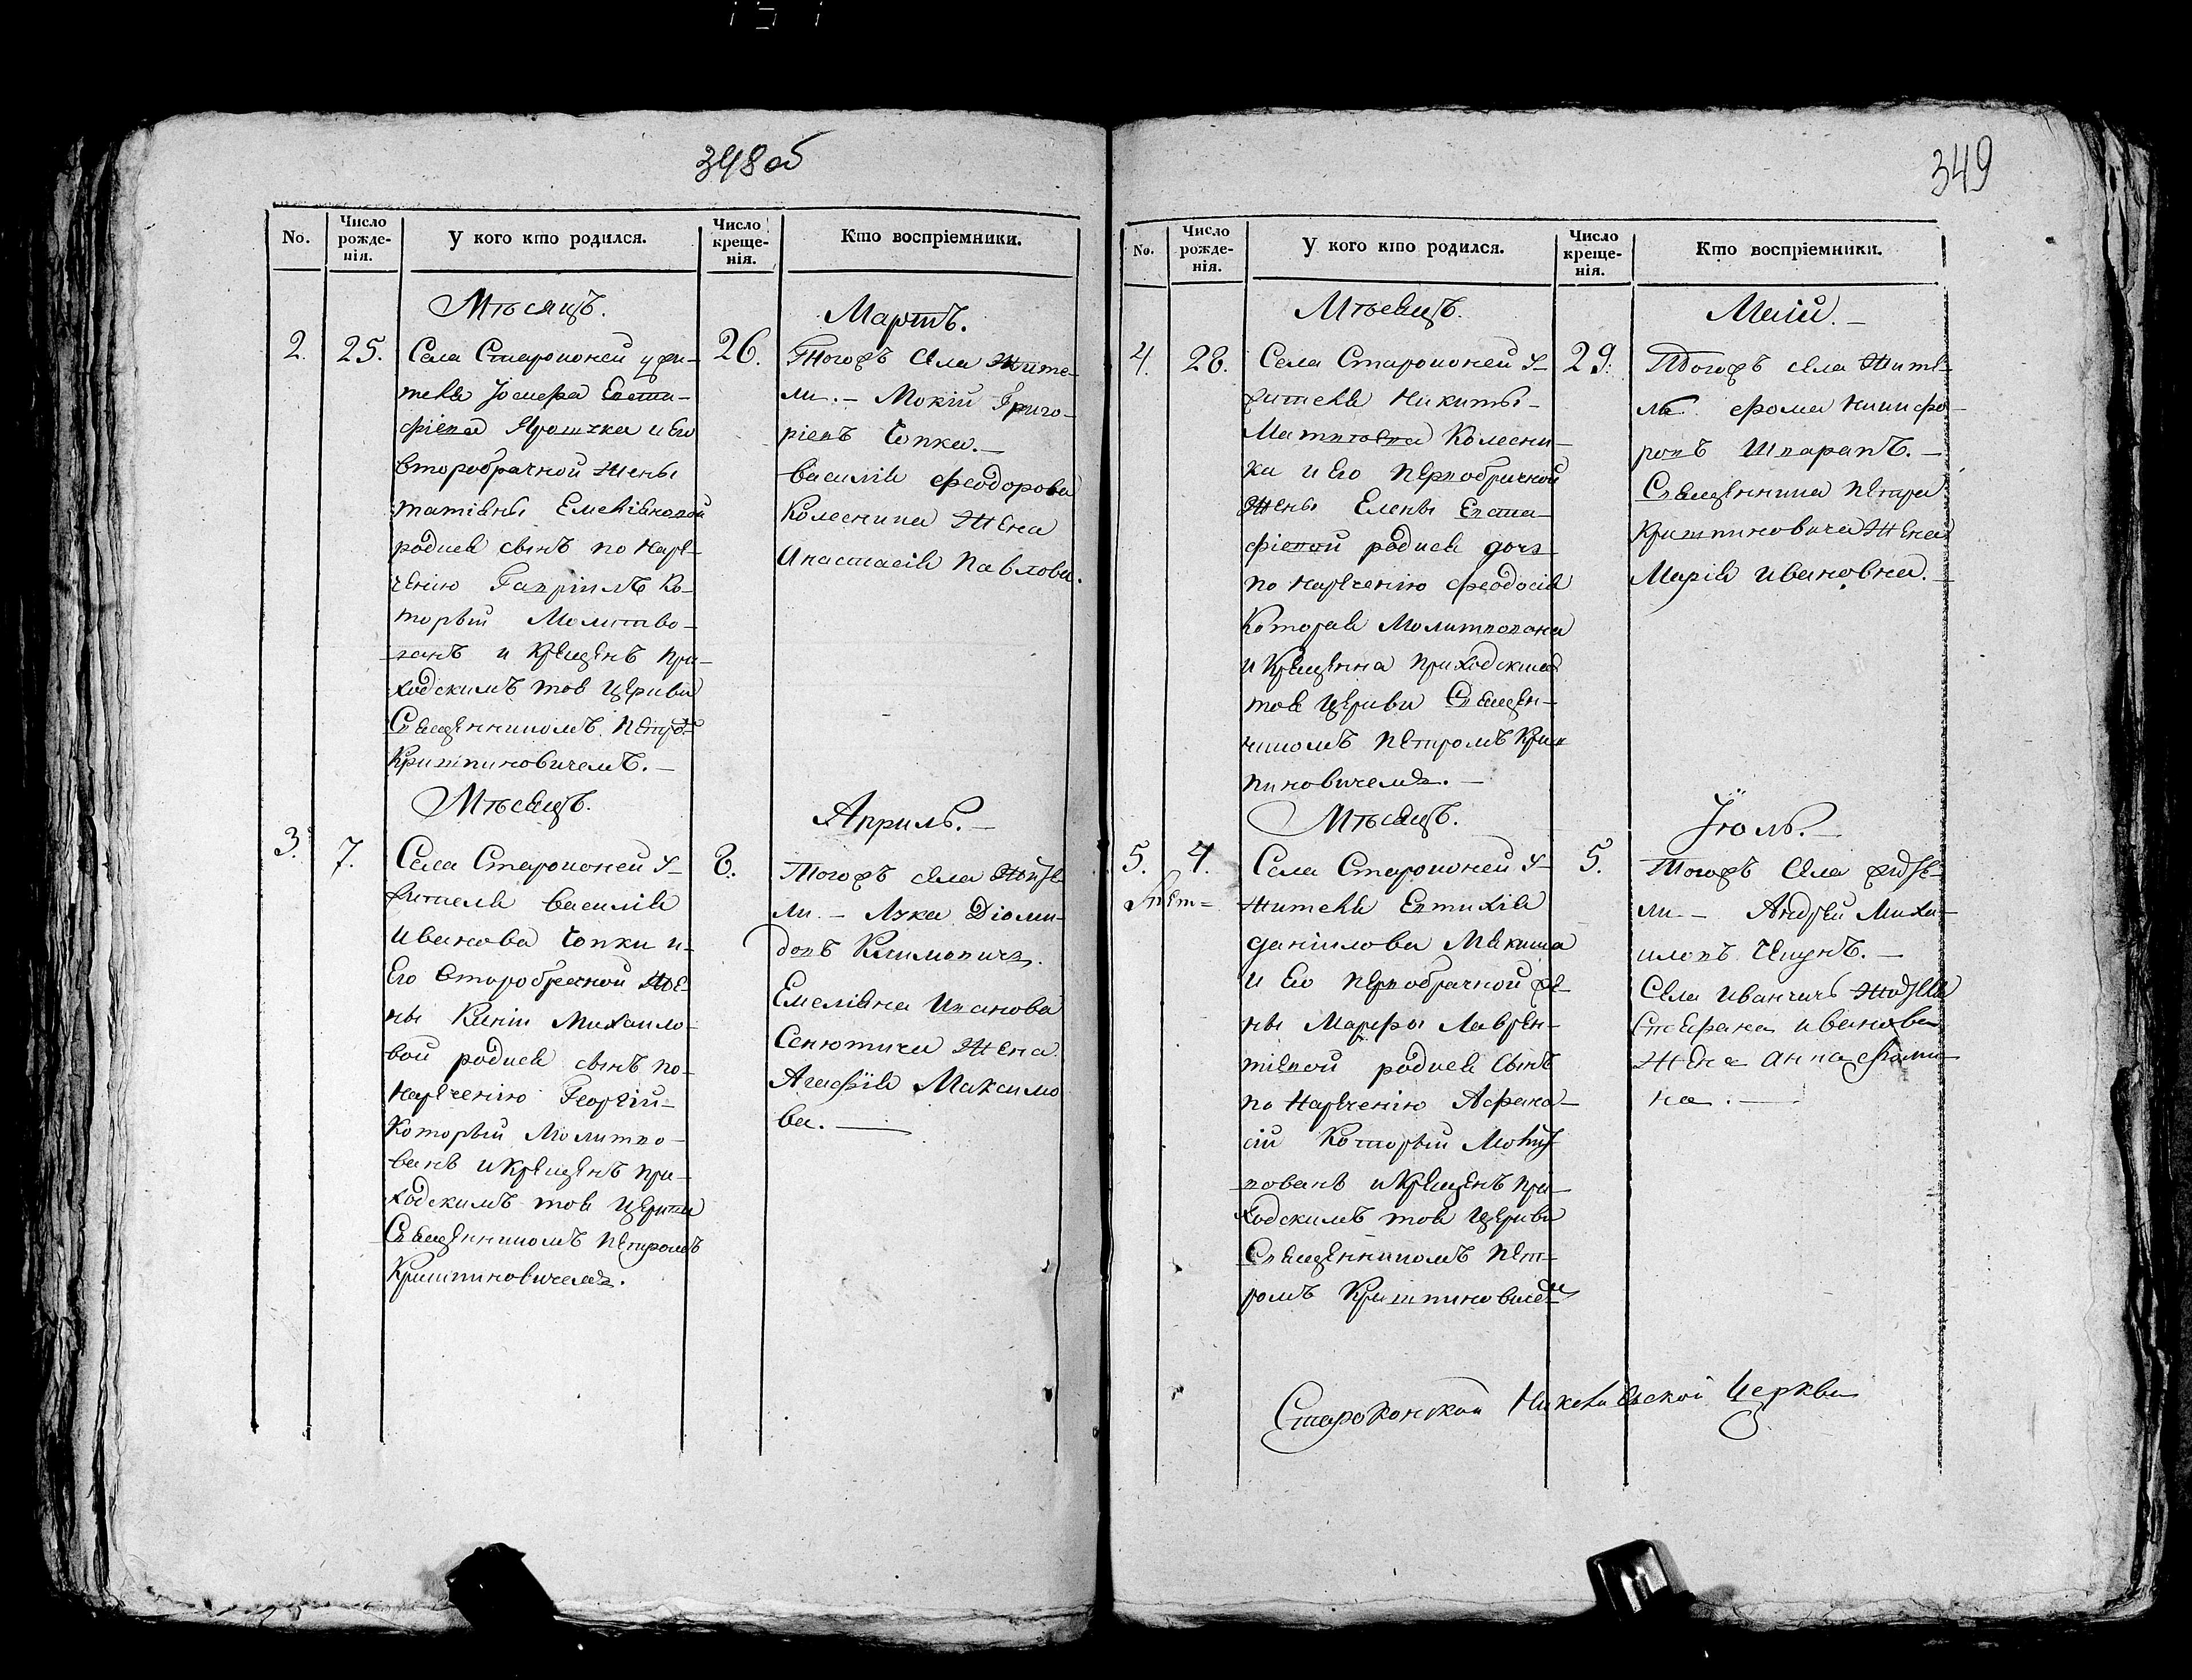 348 об
No.
Число рожде-нія.
У кого кто родился.
Число креще-нія.
Кто воспріемники.
Мѣсяцъ.
Мартъ.
2. 25.
Села Староконей у жи-
теля Іосифа Евста-
фіева Ярошика и его
второбрачной жены
татіяны Емеліяновой
родися сынъ по наре-
ченію Гавріилъ Ко-
торый Молитво-
ванъ и Крещенъ при-
ходскимъ тоя церкви
Священникомъ Петро:
Криштиновичемъ. —
26.
Тогожъ Села жите-
ли. — Мокій Григо-
ріевъ Сопка. —
василія феодорова
Колесника жена
Анастасія Павлова.
Мѣсяцъ.
Априль. —
3. 7.
Села Староконей у
жителя василія
Иванова Сопки и-
его второбрачной же
ны Ксеніи Михаило-
вой родися сынъ по-
нареченію Георгій-
Который Молитво-
ванъ и Крещенъ при-
ходскимъ тоя церкви
Священникомъ Петромъ
Криштиновичемъ.
8.
Тогожъ села жите
ли. — Лука Діоми-
довъ Климовичъ.
Емеліяна Иванова
Сенютича жена
Агафія Максимо
ва. —
349
No.
Число рожде-нія.
У кого кто родился.
Число креще-нія.
Кто воспріемники.
Мѣсяцъ.
Маій. —
4. 28.
Села Староконей у-
жителя Никиты-
Матвѣева Колесни-
ка и его первобрачной
жены Елены Евста-
фіевой родися дочь
по нареченію феодосія
Которая Молитвована
и Крещенна приходскимъ
тоя церкви Священ-
никомъ Петромъ Криш
тиновичемъ. —
29.
Тогожъ села жите-
ли фома Никифо-
ровъ Шпарапъ. —
Священника Петра
Криштиновича жена
Марія Ивановна. —
Мѣсяцъ.
Іюль. —
5. 4.
Села Староконей у-
жителя Евтихія
даніилова Мякиша
и его первобрачной же-
ны Марфы Лаврен-
тіевой родися сынъ
по нареченію Афана-
сій Который Молит
вованъ и Крещенъ при-
ходскимъ тоя церкви
Священникомъ Пет-
ромъ Криштинович
5.
Тогожъ Села жите-
ли — Андрей Миха-
иловъ —
Села Иванчичъ жителя
Стефана иванова
жена анна фоми-
на. —
Староконской Николаевской Церкви